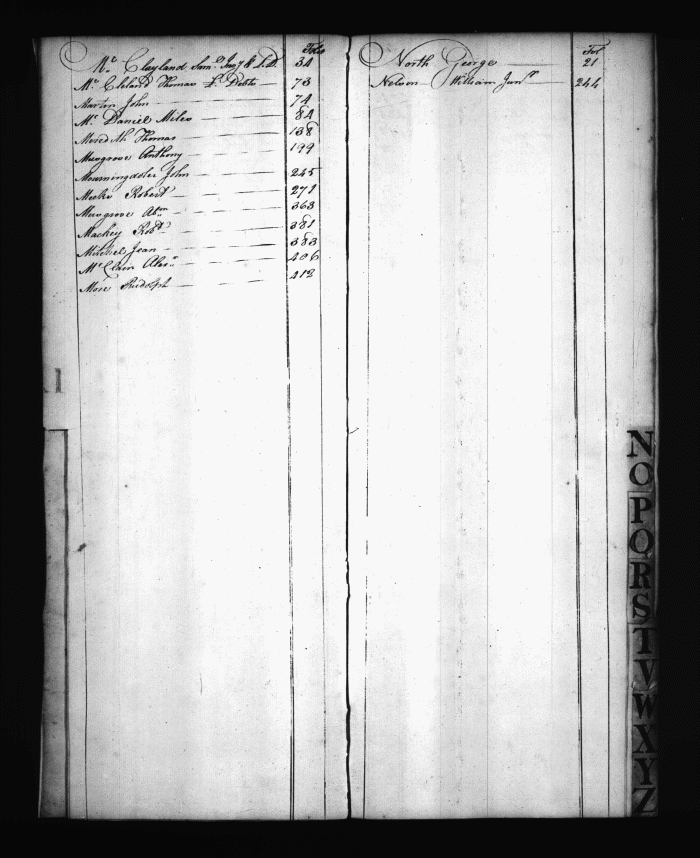 Folio
Mc. Clayland Sam. 34
Mc Cleland Thomas 73
Martin John 74
Mc. Daniel Miles 84
Meredith Thomas 138
Musgrove Anthony 199
Mourningdoler John 245
Meeks Robert 271
Musgrove Abm 363
Mackey Robt 381
Mitchel Jean 383
Mc Clain Alexr 406
More Rudolph 412
Fol
North George 21
Nelson William Junr 244
N
O
P
Q
R
S
T
V
W
X
Y
Z